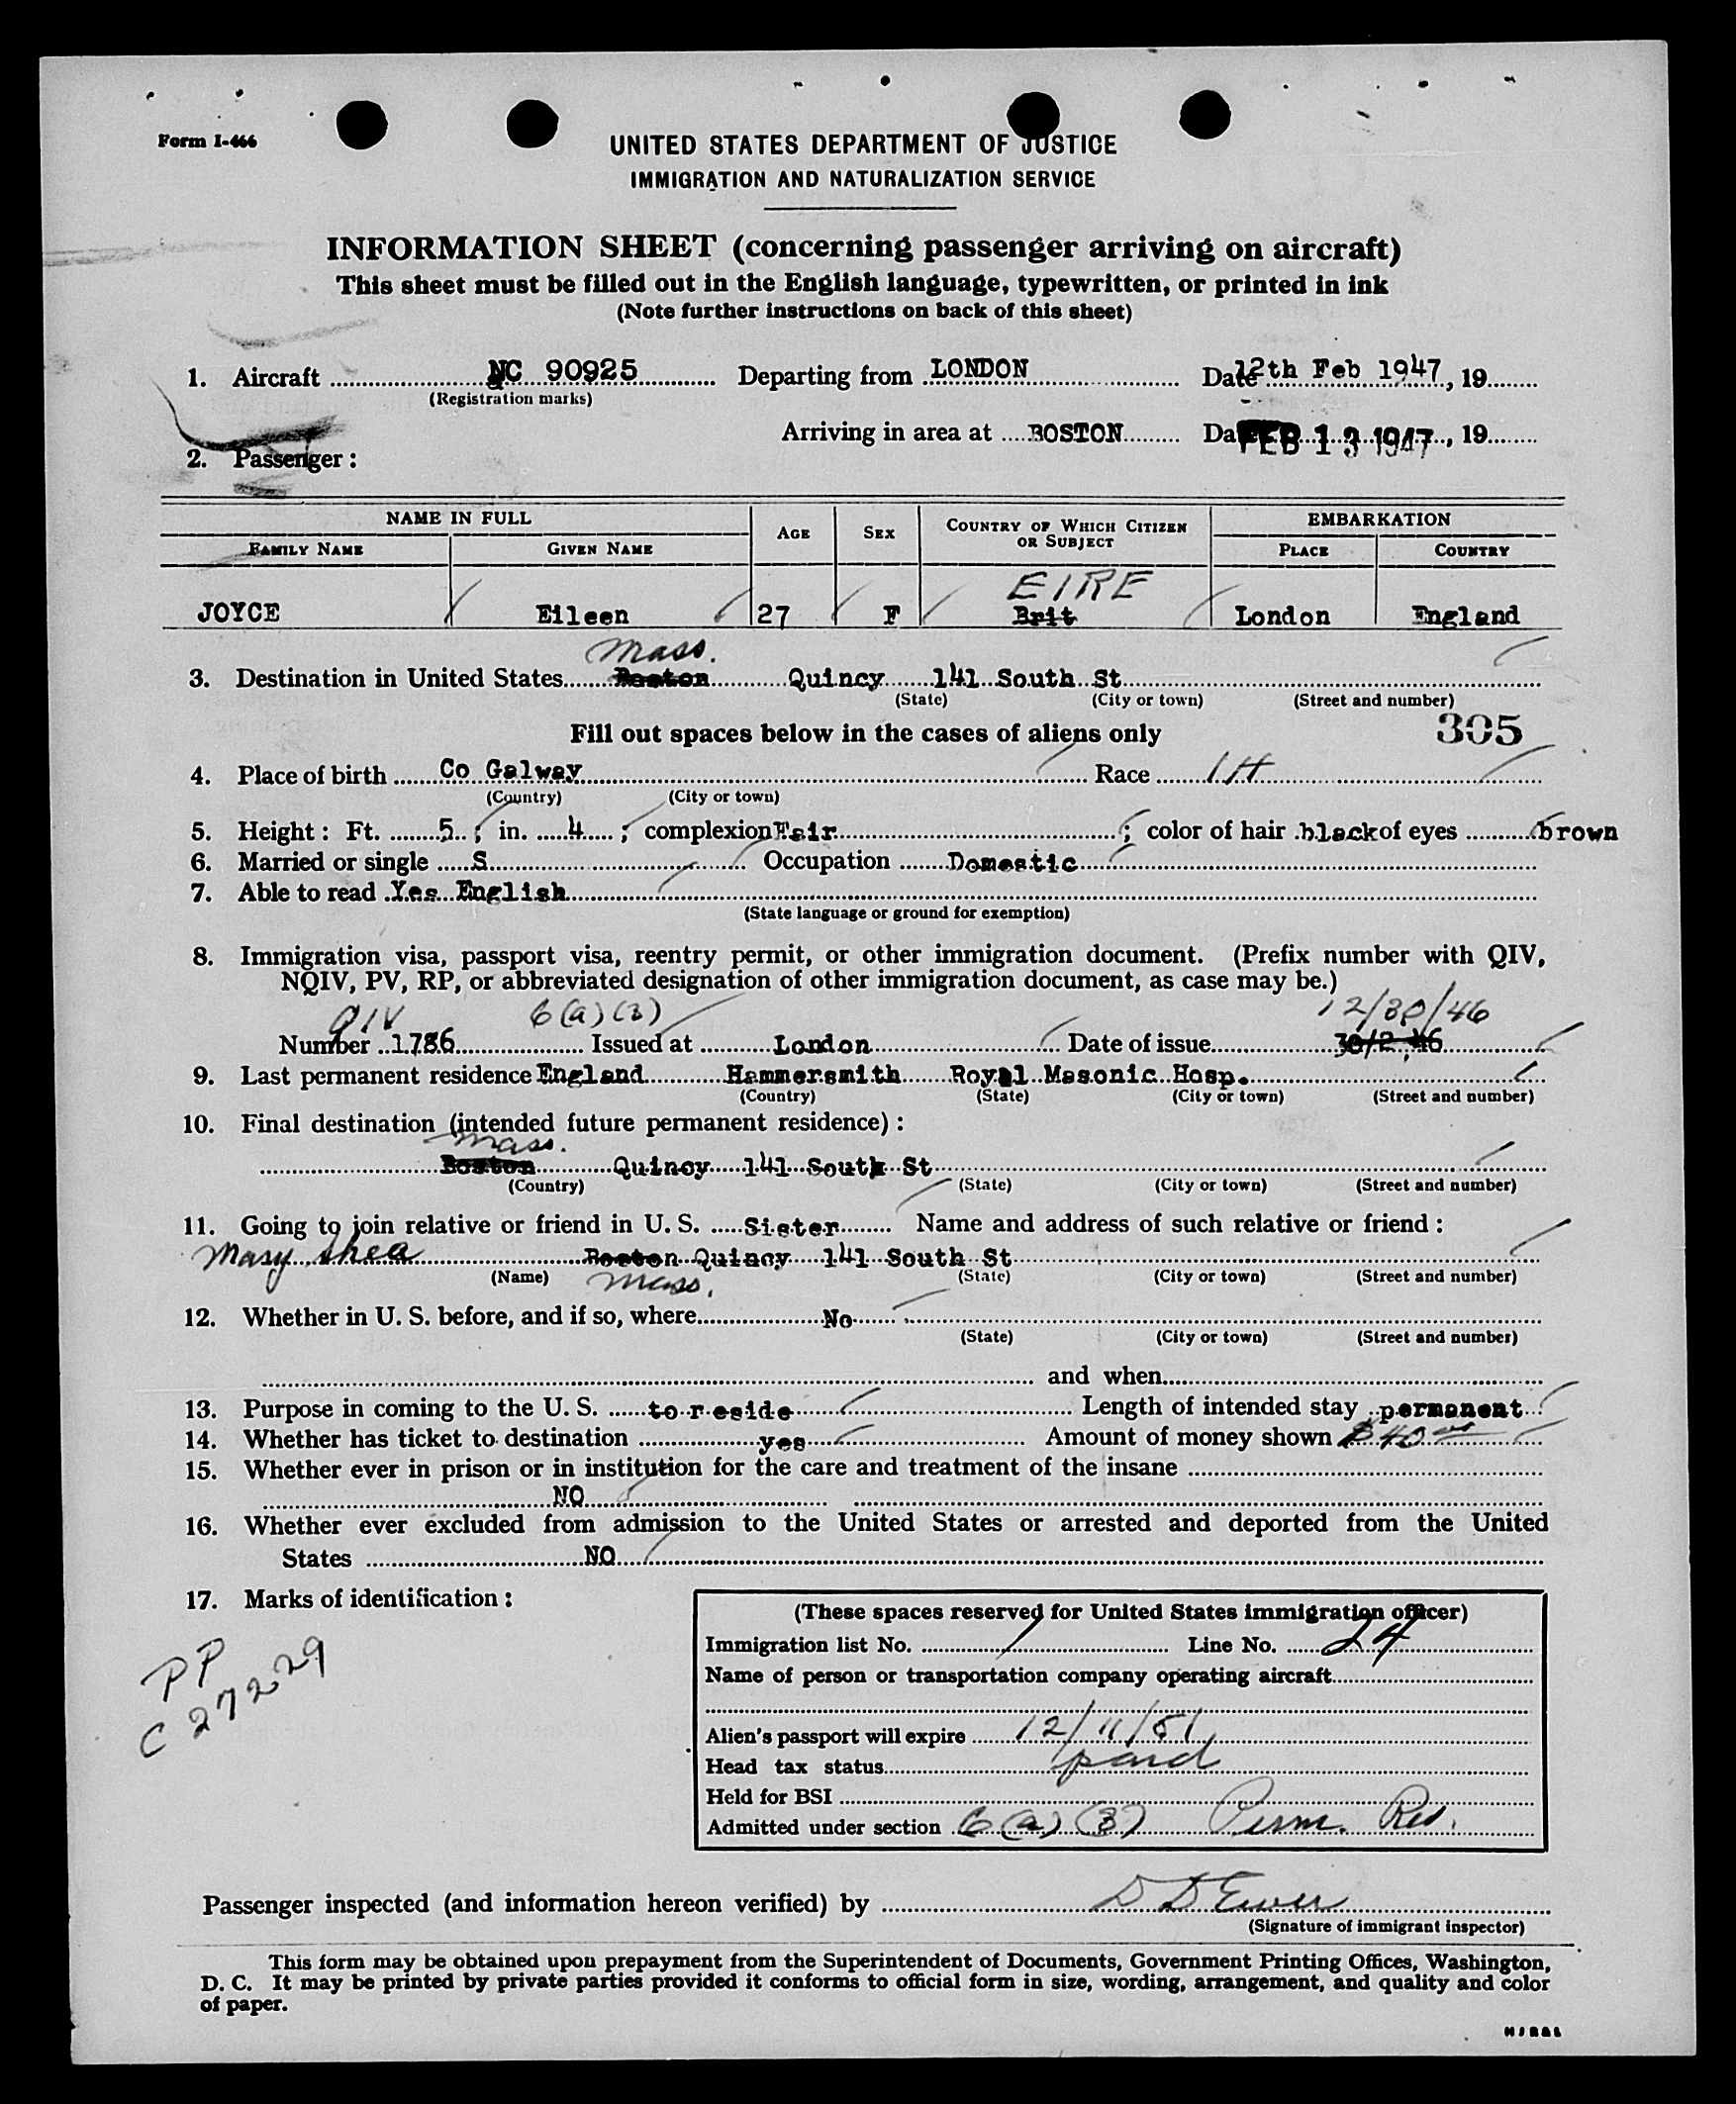 Form I-466
UNITED STATES DEPARTMENT OF JUSTICE
IMMIGRATION AND NATURALIZATION SERVICE
INFORMATION SHEET (concerning passenger arriving on aircraft)
This sheet must be filled out in the English language, typewritten, or printed in ink
(Note further instructions on back of this sheet)
1. Aircraft NC 90925 Departing from LONDON Date 12th Feb 1947, 19
(Registration marks)
Arriving in area at BOSTON Da FEB 13 1947, 19
2. Passenger:
NAME IN FULL AGE SEX COUNTRY OF WHICH CITIZEN OR SUBJECT EMBARKATION
FAMILY NAME GIVEN NAME PLACE COUNTRY
EIRE
JOYCE Eileen 27 F Brit London England
Mass.
3. Destination in United States Boston Quincy 141 South St
(State) (City or town) (Street and number)
Fill out spaces below in the cases of aliens only 305
4. Place of birth Co Galway Race IH
(Country) (City or town)
5. Height: Ft. 5; in. 4; complexion Fair; color of hair black of eyes brown
6. Married or single S Occupation Domestic
7. Able to read Yes English
(State language or ground for exemption)
8. Immigration visa, passport visa, reentry permit, or other immigration document. (Prefix number with QIV,
NQIV, PV, RP, or abbreviated designation of other immigration document, as case may be.)
QIV 6(a)(3) 12/30/46
Number 1786 Issued at London Date of issue 30/2/46
9. Last permanent residence England Hammersmith Royal Masonic Hosp.
(Country) (State) (City or town) (Street and number)
10. Final destination (intended future permanent residence):
Mass.
Boston Quincy 141 South St
(Country) (State) (City or town) (Street and number)
11. Going to join relative or friend in U. S. Sister Name and address of such relative or friend:
Mary Shea Boston Quincy 141 South St
(Name) Mass. (State) (City or town) (Street and number)
12. Whether in U. S. before, and if so, where No
(State) (City or town) (Street and number)
and when
13. Purpose in coming to the U. S. to reside Length of intended stay permanent
14. Whether has ticket to destination yes Amount of money shown $40.00
15. Whether ever in prison or in institution for the care and treatment of the insane
NO
16. Whether ever excluded from admission to the United States or arrested and deported from the United
States NO
17. Marks of identification:
PP
C 27229
(These spaces reserved for United States immigration officer)
Immigration list No. 1 Line No. 24
Name of person or transportation company operating aircraft
Alien's passport will expire 12/11/51
Head tax status paid
Held for BSI
Admitted under section 6(a)(3) Perm. Res.
Passenger inspected (and information hereon verified) by D D Ewer
(Signature of immigrant inspector)
This form may be obtained upon prepayment from the Superintendent of Documents, Government Printing Offices, Washington,
D. C. It may be printed by private parties provided it conforms to official form in size, wording, arrangement, and quality and color
of paper.